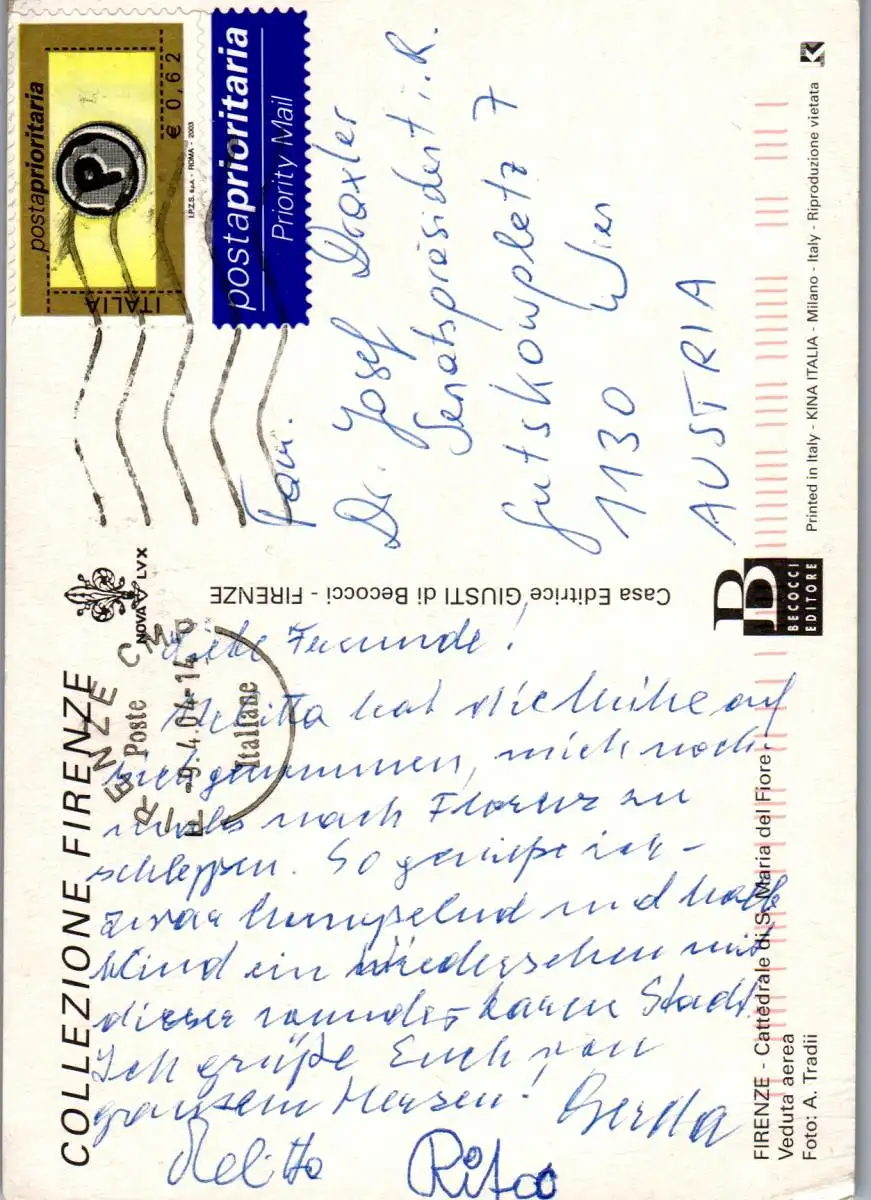 COLLEZIONE FIRENZE
NOVA LVX
FIRENZE CMP
Poste
-9.4.04-14
Italiane
Liebe Freunde!
Melitta hat die Mühe auf
sich genommen, mich noch
mals nach Florenz zu
schleppen. So genieße ich -
zwar humpelnd und halb
blind ein Wiedersehen mit
dieser wunderbaren Stadt.
Ich grüße Euch von
ganzem Herzen!
Gerda
Melitta
Rita
FIRENZE - Cattedrale di S. Maria del Fiore.
Veduta aerea
Foto: A. Tradii
Casa Editrice GIUSTI di Becocci - FIRENZE
BECOCCI
EDITORE
postaprioritaria
P
€ 0,62
ITALIA
I.P.Z.S. S.p.A. - ROMA - 2003
postaprioritaria
Priority Mail
Fam.
Dr. Josef Draxler
Senatspräsident i.R.
Gutzkowplatz 7
1130 Wien
AUSTRIA
Printed in Italy - KINA ITALIA - Milano - Italy - Riproduzione vietata
K